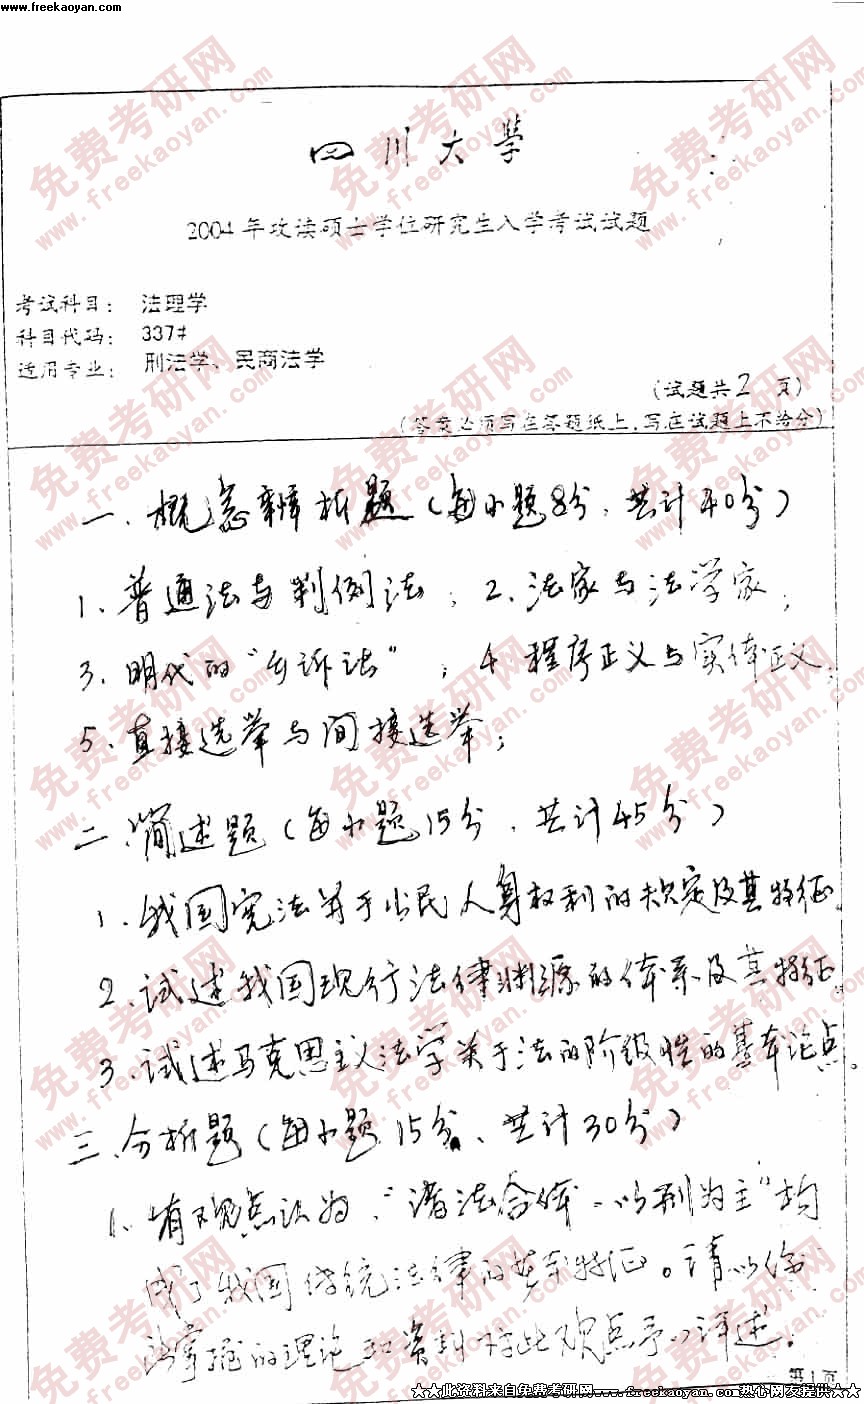 www.freekaoyan.com
四川大學
2004年攻读硕士学位研究生入学考试试题
考试科目：法理学
科目代码：337#
适用专业：刑法学、民商法学
（试题共2页）
（答案必须写在答题纸上，写在试题上不给分）
一、概念辨析题（每小题8分，共计40分）
1、普通法与判例法；2、法家与法学家；
3、明代的“ 诉法”；4、程序正义与实体正义；
5、直接选举与间接选举；
二、简述题（每小题15分，共计45分）
1、我国宪法关于公民人身权利的规定及其特征。
2、试述我国现行法律渊源的体系及其特征。
3、试述马克思主义法学关于法的阶级性的基本论点。
三、分析题（每小题15分、共计30分）
1、有观点认为，“诸法合体、以刑为主”构
成了我国传统法律的基本特征。请以你
所掌握的理论和资料对此观点予以评述。
第1页
★★此资料来自免费考研网www.freekaoyan.com热心网友提供★★
免费考研网
www.freekaoyan.com